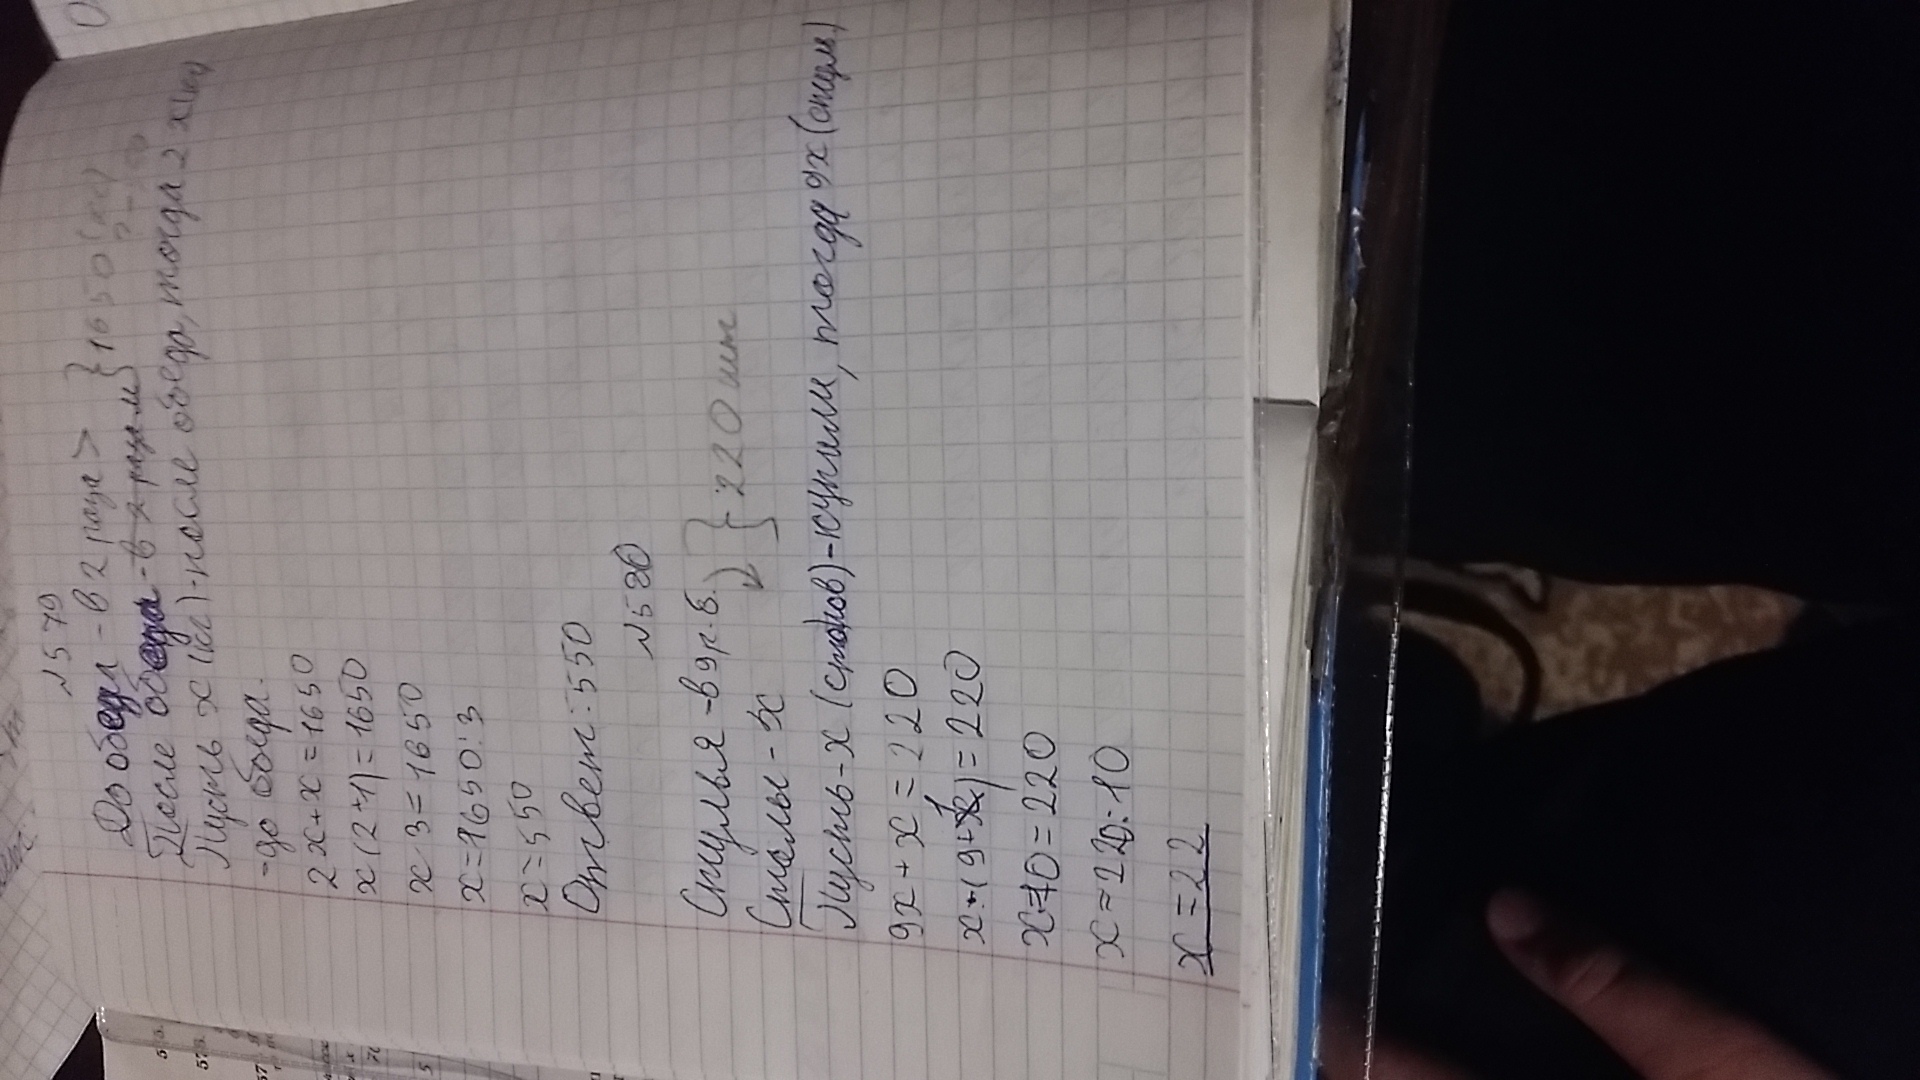 №579
До обеда - в 2 раза > } 1650 (кг)
После обеда - в 2 раза м
Пусть x (кг) - после обеда, тогда 2x(кг)
- до обеда.
2x+x=1650
x(2+1)=1650
x·3=1650
x=1650:3
x=550
Ответ: 550
№580
Стулья - в 9 р. б. } 220 шт
Столы - x
Пусть - x (столов) - купили, тогда 9x (стул)
9x+x=220
x·(9+1)=220
x·10=220
x=220:10
x=22